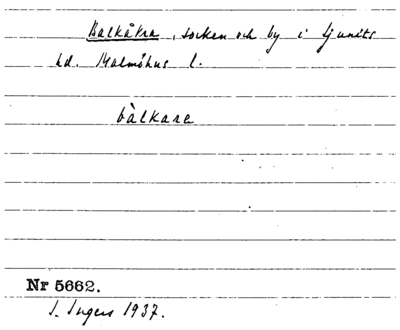 Balkåkra, socken och by i Ljunits
hd. Malmöhus l.
bàlkare
Nr 5662.
I. Ingers 1937.